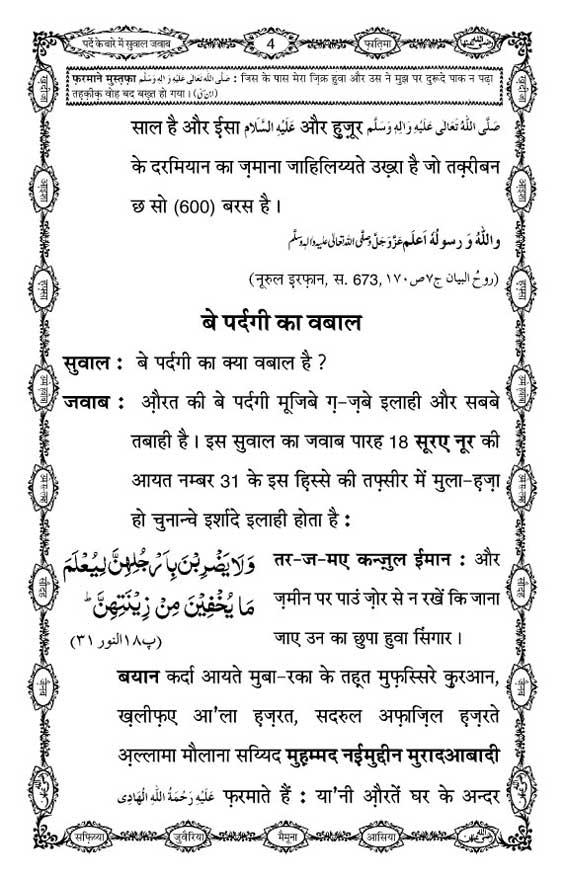 पर्दे के बारे में सुवाल जवाब
4
फ़ातिमा
फ़रमाने मुस्तफ़ा صَلَّى اللهُ تَعَالٰى عَلَيْهِ وَاٰلِهٖ وَسَلَّم : जिस के पास मेरा ज़िक्र हुवा और उस ने मुझ पर दुरूदे पाक न पढ़ा
तहक़ीक़ वोह बद बख़्त हो गया । (ابن سنی)
साल है और ईसा عَلَيْهِ السَّلَام और हुज़ूर صَلَّى اللهُ تَعَالٰى عَلَيْهِ وَاٰلِهٖ وَسَلَّم
के दरमियान का ज़माना जाहिलिय्यते उख़्रा है जो तक़रीबन
छ सो (600) बरस है ।
وَاللهُ وَ رسولُهٗ اَعلَم عَزَّوَجَلَّ وَ صَلَّى اللهُ تَعَالٰى عليه واٰلهٖ وسلَّم
(नूरुल इरफ़ान, स. 673, روحُ البيان ج٧ ص١٧٠)
बे पर्दगी का वबाल
सुवाल : बे पर्दगी का क्या वबाल है ?
जवाब : औ़रत की बे पर्दगी मूजिबे ग़-ज़बे इलाही और सबबे
तबाही है । इस सुवाल का जवाब पारह 18 सूरए नूर की
आयत नम्बर 31 के इस ह़िस्से की तफ़्सीर में मुला-ह़ज़ा
हो चुनान्चे इर्शादे इलाही होता है :
وَلَا يَضْرِبْنَ بِاَرْجُلِهِنَّ لِيُعْلَمَ
مَا يُخْفِيْنَ مِنْ زِيْنَتِهِنَّ ؕ
(پ١٨ النور ٣١)
तर-ज-मए कन्ज़ुल ईमान : और
ज़मीन पर पाउं ज़ोर से न रखें कि जाना
जाए उन का छुपा हुवा सिंगार ।
बयान कर्दा आयते मुबा-रका के तह़्त मुफ़स्सिरे क़ुरआन,
ख़लीफ़ए आ'ला ह़ज़रत, सदरुल अफ़ाज़िल ह़ज़रते
अ़ल्लामा मौलाना सय्यिद मुह़म्मद नई़मुद्दीन मुरादआबादी
عَلَيْهِ رَحْمَةُ اللهِ الْهَادِى फ़रमाते हैं : या'नी औ़रतें घर के अन्दर
सफ़िय्या
जुवैरिया
मैमूना
आसिया